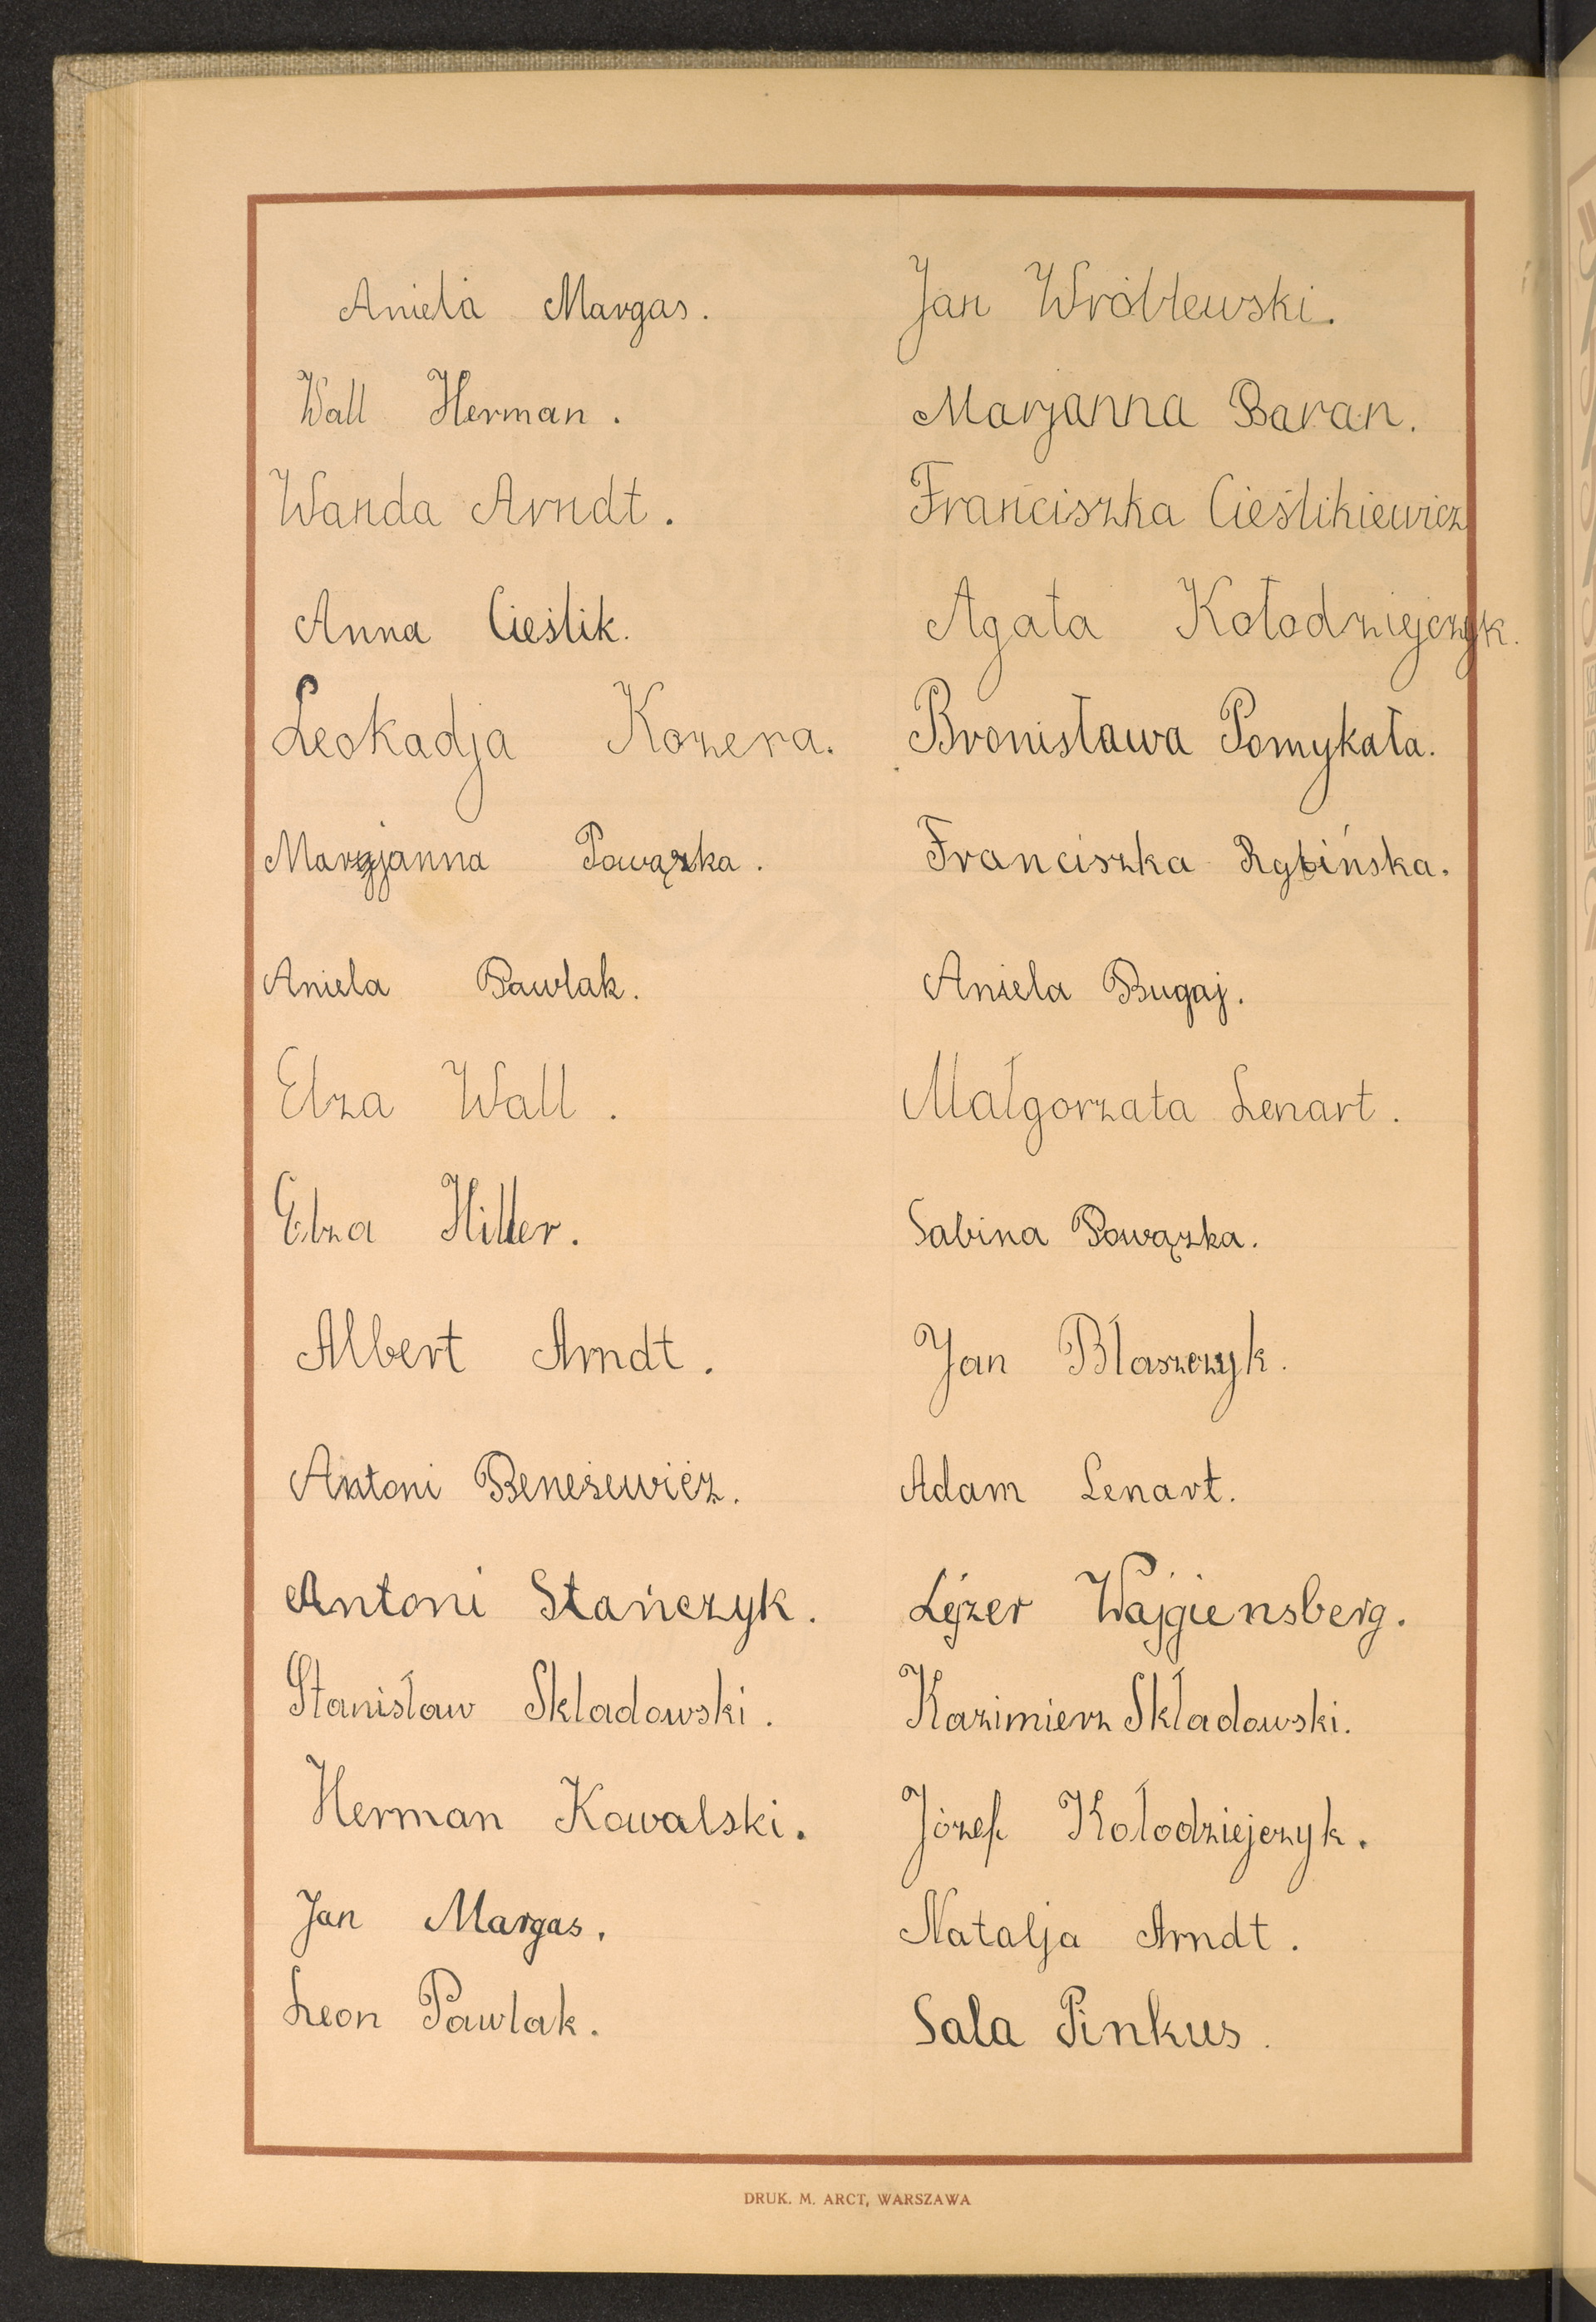 Aniela Margas.
Wall Herman.
Wanda Arndt.
Anna Cieślik.
Leokadja Kozera.
Marjanna Powązka.
Aniela Pawlak.
Elza Wall.
Elza Hiller.
Albert Arndt.
Antoni Beneśewicz.
Antoni Stańczyk.
Stanisław Skladowski.
Herman Kowalski.
Jan Margas.
Leon Pawlak.
Jan Wróblewski.
Marjanna Baran.
Franciszka Cieślikiewicz
Agata Kołodziejczyk.
Bronisława Pomykała.
Franciszka Rybińska.
Aniela Bugaj.
Małgorzata Lenart.
Sabina Powązka.
Jan Błaszczyk.
Adam Lenart.
Lejzer Wajgiensberg.
Kazimierz Składowski.
Józef Kołodziejczyk.
Natalja Arndt.
Sala Pinkus.
DRUK. M. ARCT, WARSZAWA